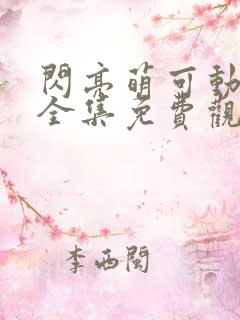 閃亮萌可動
全集免費觀
李西閩